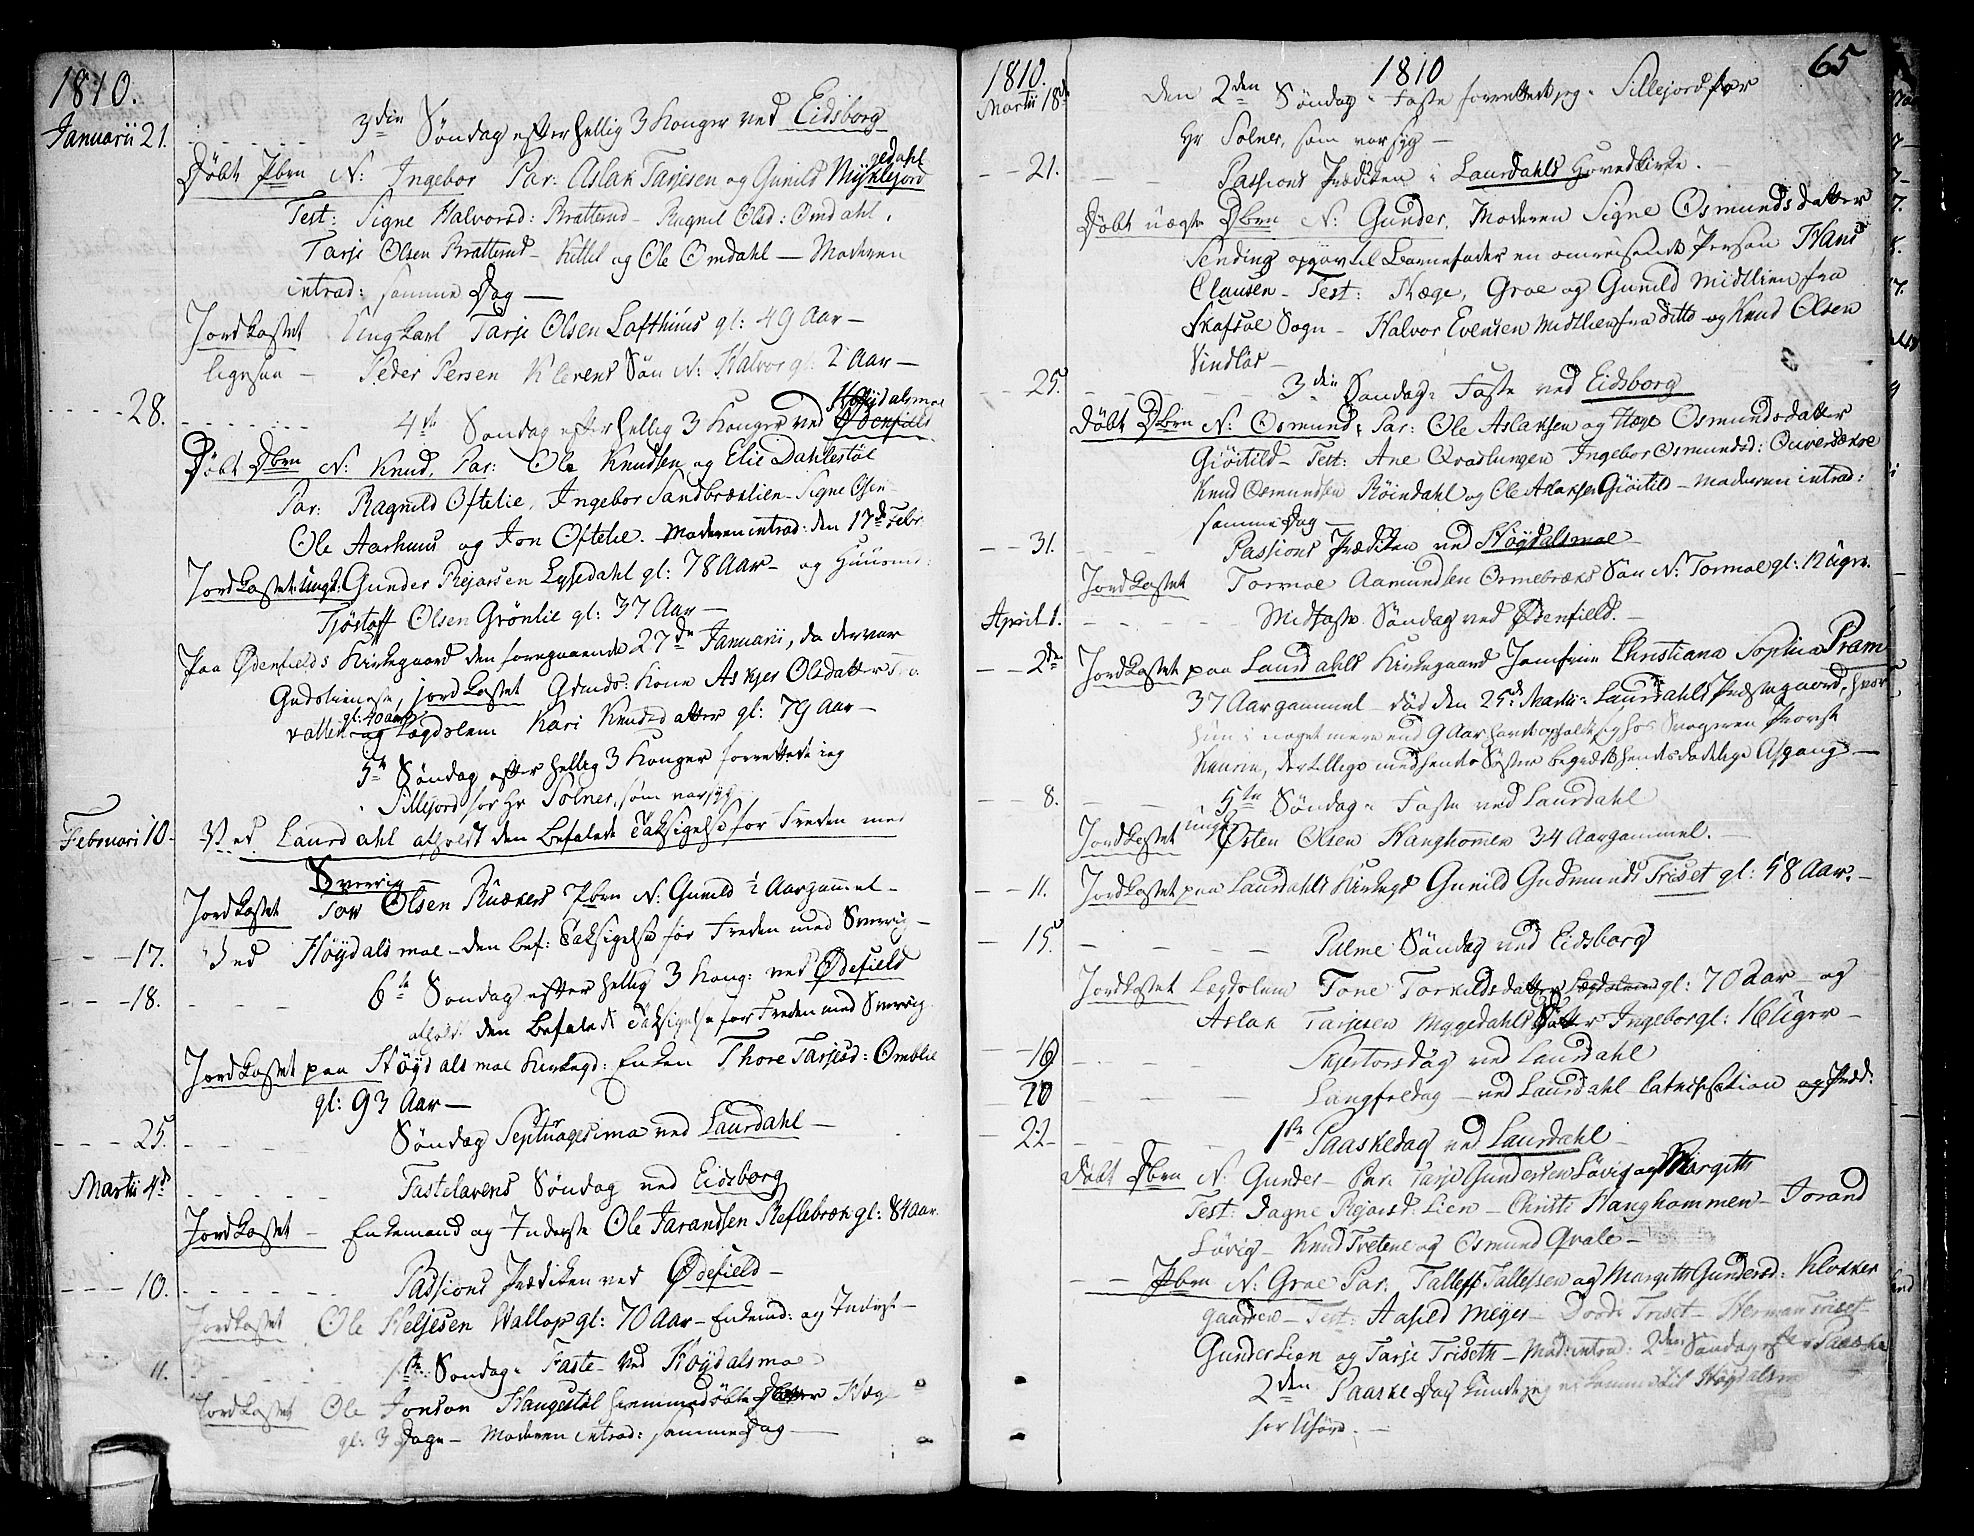 1810.
Januarii 21. 3die Søndag efter hellig 3 Konger ved Eidsborg
Døbt Pbrn N: Ingebor Par: Aslak Tarjesen og Gunild Mykle
Test: Signe Halvorsd: Bratterud – Ragnil Olsd: Omdahl.
Tarje Olsen Bratterud – Kittil og Ole Omdahl – Moderen
introd: samme Dag –
Jordkastet Ungkarl Tarje Olsen Lofthuus gl: 49 Aar –
ligesaa – Peder Persen Klevens Søn N: Halvor gl: 2 Aar –
Høydalsmoe
28. 4de Søndag efter hellig 3 Konger ved Ødenfield
Døbt Dbrn N: Knud, Par: Ole Knudsen og Elie Dahlestøl
Par: Ragnild Oftelie, Ingebor Sandbræklien – Signe
Ole Aarhuus og Jon Oftelie. Moderen introd: den 17d Febr
Jordkastet Ungk: Gunder Rejarsen Lysedahl gl: 78 Aar – og Huusm:
Tjøstoff Olsen Grønlie gl: 37 Aar –
Paa Ødenfields Kirkegaard den foregaaende 27de Januarii, da der var
Gudstieneste, jordkastet Gdmds: Kone Askjer Olsdatter
gl: 40 Aar
og Lægdslem Kari Knudsdatter gl: 79 Aar –
5te Søndag efter hellig 3 Konger forrettede jeg
i Sillejord for Hr Sølner, som var syg
Februari 10. Ved Laurdahl afholdt den befalede Taksigelse for Freden med
Sverrig –
Jordkastet Tov Olsen Ruukers Pbrn N: Gunild ½ Aar gammel –
17. Ved Høydalsmoe – den bef: Taksigelse for Freden med Sverrig –
18. 6te Søndag efter hellig 3 Kong: ved Ødefield
afholdt den befalede Taksigelse for Freden med Sverrig
Jordkastet paa Høydalsmoe Kirkegd: Enken Thore Tarjesd: Omblie
gl: 93 Aar –
25. Søndag Septuagesima ved Laurdahl –
Martii 4de Fastelavens Søndag ved Eidsborg
Jordkastet – Enkemand og Inderste Ole Tarandsen Reflebræk gl: 84 Aar.
10. Passions Prædiken ved Ødefield –
Jordkastet Ole Heljesen Vallop gl: 70 Aar – Enkemd: og Inderst –
11. 1ste Søndag i Faste ved Høydalsmoe
Jordkastet Ole Jonson Haugestøl hiemmedøbte Datter Hæge
gl: 3 Dage – Moderen introd: samme Dag –
1810. 1810 65
Martii 18de Den 2den Søndag i Faste forrettede jeg i Sillejord for
Hr Sølner, som var syg –
21. Passions Prædiken i Laurdahls Hovedkirke. –
Døbt uægte Dbrn N: Gunder. Moderen Signe Osmundsdatter
Sending opgav til Barnefader en omreisende Person Hans
Clausen – Test: Hæge, Groe og Gunild Midtlien fra
Skafsae Sogn – Halvor Evensen Midtlien fra ditto og Knud Olsen
Vindlas –
25. 3die Søndag i Faste ved Eidsborg
Døbt Dbrn N: Osmund, Par: Ole Aslaksen og Hæge Osmundsdatter
Giøitild – Test: Ane Qvaslungen Ingebor Osmundsd: Ouversækre
Knud Osmundsen Røindahl og Ole Aslaksen Giøitild – Moderen introd:
samme Dag –
31. Passions Prædiken ved Høydalsmoe –
Jordkastet Tormoe Aamundsen Ormebræks Søn N: Tormoe gl:
April 1. Midfaste Søndag ved Ødenfield. –
2den Jordkastet paa Laurdahls Kirkegaard Jomfrue Christiana Sophia Pram
37 Aar gammel – død den 25de Martii i Laurdahls Præstegaard, hvor
hun i noget mere end 9 Aar havde opholdt sig hos Svogeren Provst
der tillige med hendes Søster begræd hendes dødelige Afgang –
8. 5te Søndag i Faste ved Laurdahl
Jordkastet ungk Østen Olsen Haughommen 34 Aar gammel. –
11. Jordkastet paa Laurdahls Kirkegd Gunild Gudmunds Triset gl: 58 Aar. –
15. Palme Søndag ved Eidsborg
Jordkastet Lægdslem Tone Torkildsdatter Lægdslem gl: 70 Aar – og
Aslak Tarjesen Myggedahls Datter Ingebor gl: 16 Uger –
19 Skjertorsdag ved Laurdahl
20 Langfredag – ved Laurdahl Catechisation og Præd:
22 1ste Paaskedag ved Laurdahl –
Døbt Dbrn N: Gunder – Par: Tarje Gundersen Løvig og Margith
Test: Dagne Rejarsd: Lien – Christi Haughommen – Torand
Løvig – Knud Tvetene og Osmund Qvale –
Pbrn N: Groe Par: Tallef Tallefsen og Margith Gundersd: Klokker
gaarden – Test: Aasild Meyer – Dorde Triset – Herman Triset
Gunder Lien og Tarje Triseth – Mod: introd: 2den Søndag efter Paaske
2den Paaske Dag kunde jeg ei komme til Høydalsm
for Uføre. –